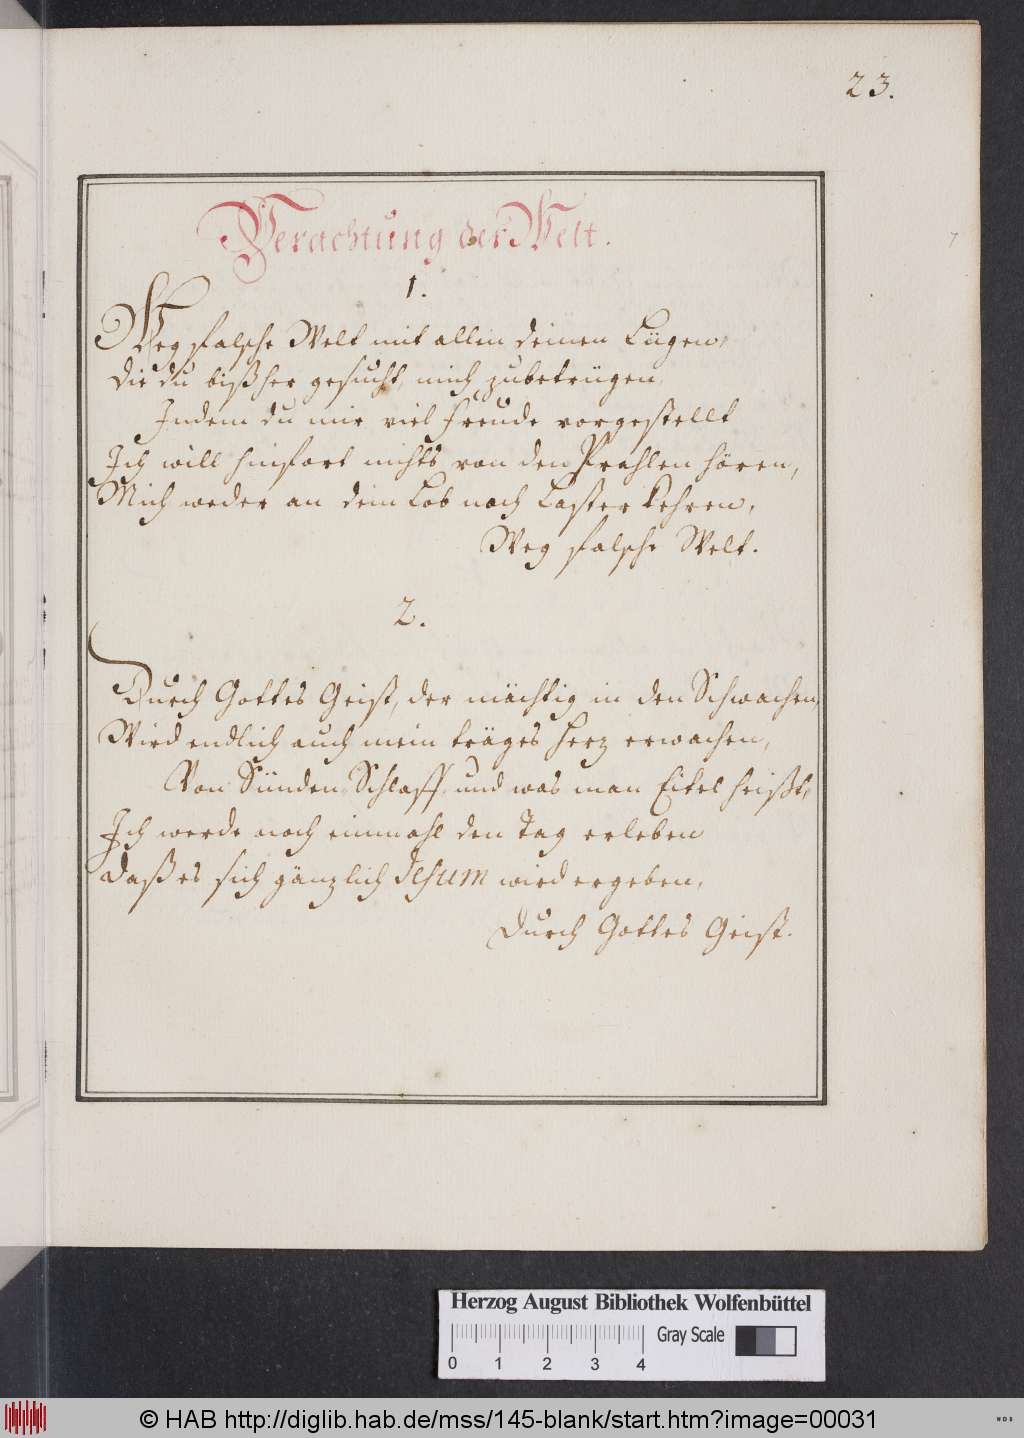 23.
Verachtung der Welt.
1.
Weg falsche Welt mit allen deinen Lügen,
Die du bißher gesucht, mich zubetrügen,
Indem du mir viel Freude vorgestellt
Ich will hinfort nichts von den Prahlen hören,
Mich weder an dein Lob noch Laster kehren,
Weg falsche Welt.
2.
Durch Gottes Geist, der mächtig in den Schwachen,
Wird endlich auch mein träges Herz erwachen,
Von Sünden Schlaff und was man Eitel heißt,
Ich werde noch einmahl den Tag erleben
Daß es sich gänzlich Jesum wird ergeben,
Durch Gottes Geist.
Herzog August Bibliothek Wolfenbüttel
Gray Scale
0 1 2 3 4
© HAB http://diglib.hab.de/mss/145-blank/start.htm?image=00031